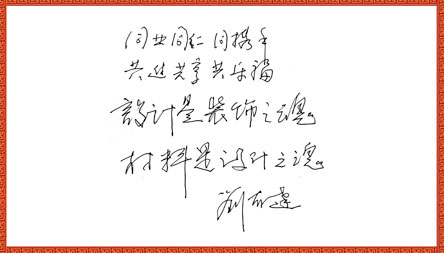 同业同仁 同携手
共进共享共乐福
設计是装饰之魂。
材料是设计之魂。